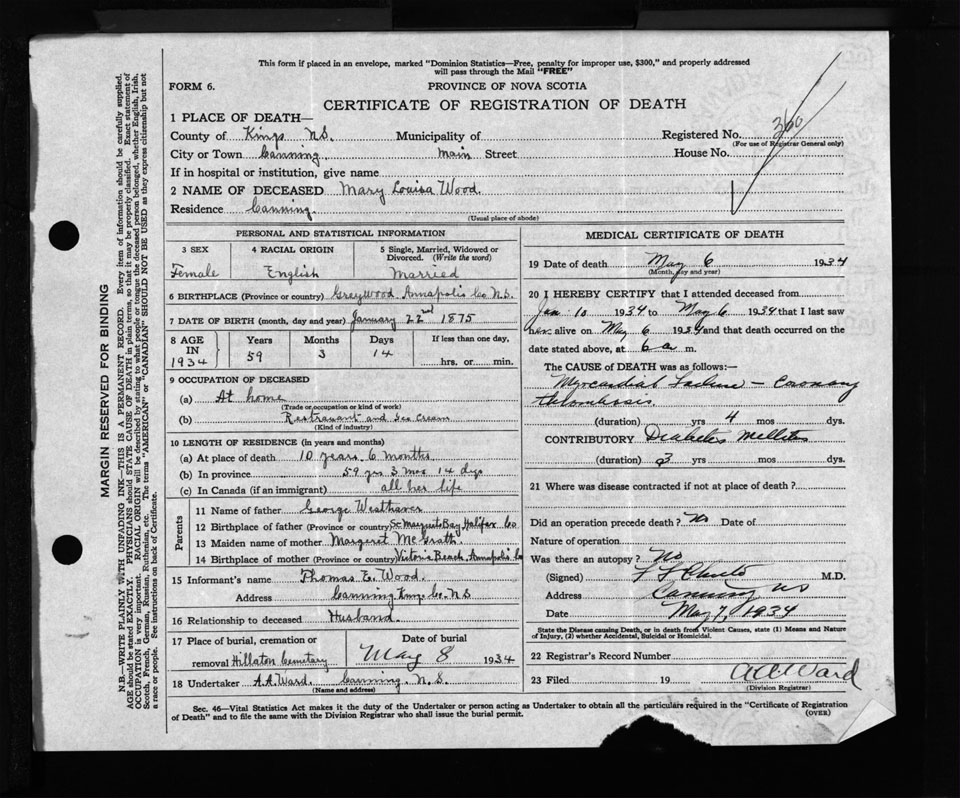 This form if placed in an envelope, marked "Dominion Statistics—Free, penalty for improper use, $300," and properly addressed
will pass through the Mail "FREE"
FORM 6.
PROVINCE OF NOVA SCOTIA
CERTIFICATE OF REGISTRATION OF DEATH
1 PLACE OF DEATH—
County of Kings N.S. Municipality of Registered No. 360
(For use of Registrar General only)
City or Town Canning Main Street House No.
If in hospital or institution, give name
2 NAME OF DECEASED Mary Louisa Wood
Residence Canning
(Usual place of abode)
PERSONAL AND STATISTICAL INFORMATION
3 SEX 4 RACIAL ORIGIN 5 Single, Married, Widowed or
Divorced. (Write the word)
Female English Married
6 BIRTHPLACE (Province or country) Greywood Annapolis Co N.S.
7 DATE OF BIRTH (month, day and year) January 22nd 1875
8 AGE IN 1934 Years Months Days If less than one day,
59 3 14 hrs. or min.
9 OCCUPATION OF DECEASED
(a) At home
(Trade or occupation or kind of work)
(b) Restraurant and Ice Cream
(Kind of industry)
10 LENGTH OF RESIDENCE (in years and months)
(a) At place of death 10 years 6 months
(b) In province 59 yrs 3 mos 14 dys
(c) In Canada (if an immigrant) all her life
Parents
11 Name of father George Westhaver
12 Birthplace of father (Province or country) St Margrets Bay Halifax Co
13 Maiden name of mother Margaret McGrath
14 Birthplace of mother (Province or country) Victoria Beach Annapolis Co
15 Informant's name Thomas E. Wood
Address Canning Kings Co. N.S
16 Relationship to deceased Husband
17 Place of burial, cremation or Date of burial
removal Hillaton Cemetary May 8 1934
18 Undertaker A.A. Ward. Canning. N.S.
(Name and address)
MEDICAL CERTIFICATE OF DEATH
19 Date of death May 6 1934
(Month, day and year)
20 I HEREBY CERTIFY that I attended deceased from
Jan 10 1934 to May 6 1934 that I last saw
her alive on May 6 1934 and that death occurred on
date stated above, at 6 a m.
The CAUSE OF DEATH was as follows:—
Myocardial Failure — Coronary
thrombosis
(duration) yrs 4 mos dys.
CONTRIBUTORY Diabetes Mellitus
(duration) 3 yrs mos dys.
21 Where was disease contracted if not at place of death?
Did an operation precede death? No Date of
Nature of operation
Was there an autopsy? No
(Signed) M.D.
Address Canning NS
Date May 7, 1934
State the Disease causing Death, or in death from Violent Causes, state (1) Means and Nature
of Injury, (2) whether Accidental, Suicidal or Homicidal.
22 Registrar's Record Number
23 Filed 19 A A Ward
(Division Registrar)
Sec. 46—Vital Statistics Act makes it the duty of the Undertaker or person acting as Undertaker to obtain all the particulars required in the "Certificate of Registration
of Death" and to file the same with the Division Registrar who shall issue the burial permit.
(OVER)
MARGIN RESERVED FOR BINDING
N.B.—WRITE PLAINLY WITH UNFADING INK—THIS IS A PERMANENT RECORD. Every item of information should be carefully supplied.
AGE should be stated EXACTLY. PHYSICIANS should STATE CAUSE OF DEATH in plain terms, so that it may be properly classified. Exact statement of
OCCUPATION is very important. RACIAL ORIGIN will be described by stating to what people or tongue the deceased person belonged, whether English, Irish,
Scotch, French, German, Russian, Ruthenian, etc. The terms "AMERICAN" or "CANADIAN" SHOULD NOT BE USED as they express citizenship but not
a race or people. See instructions on back of Certificate.